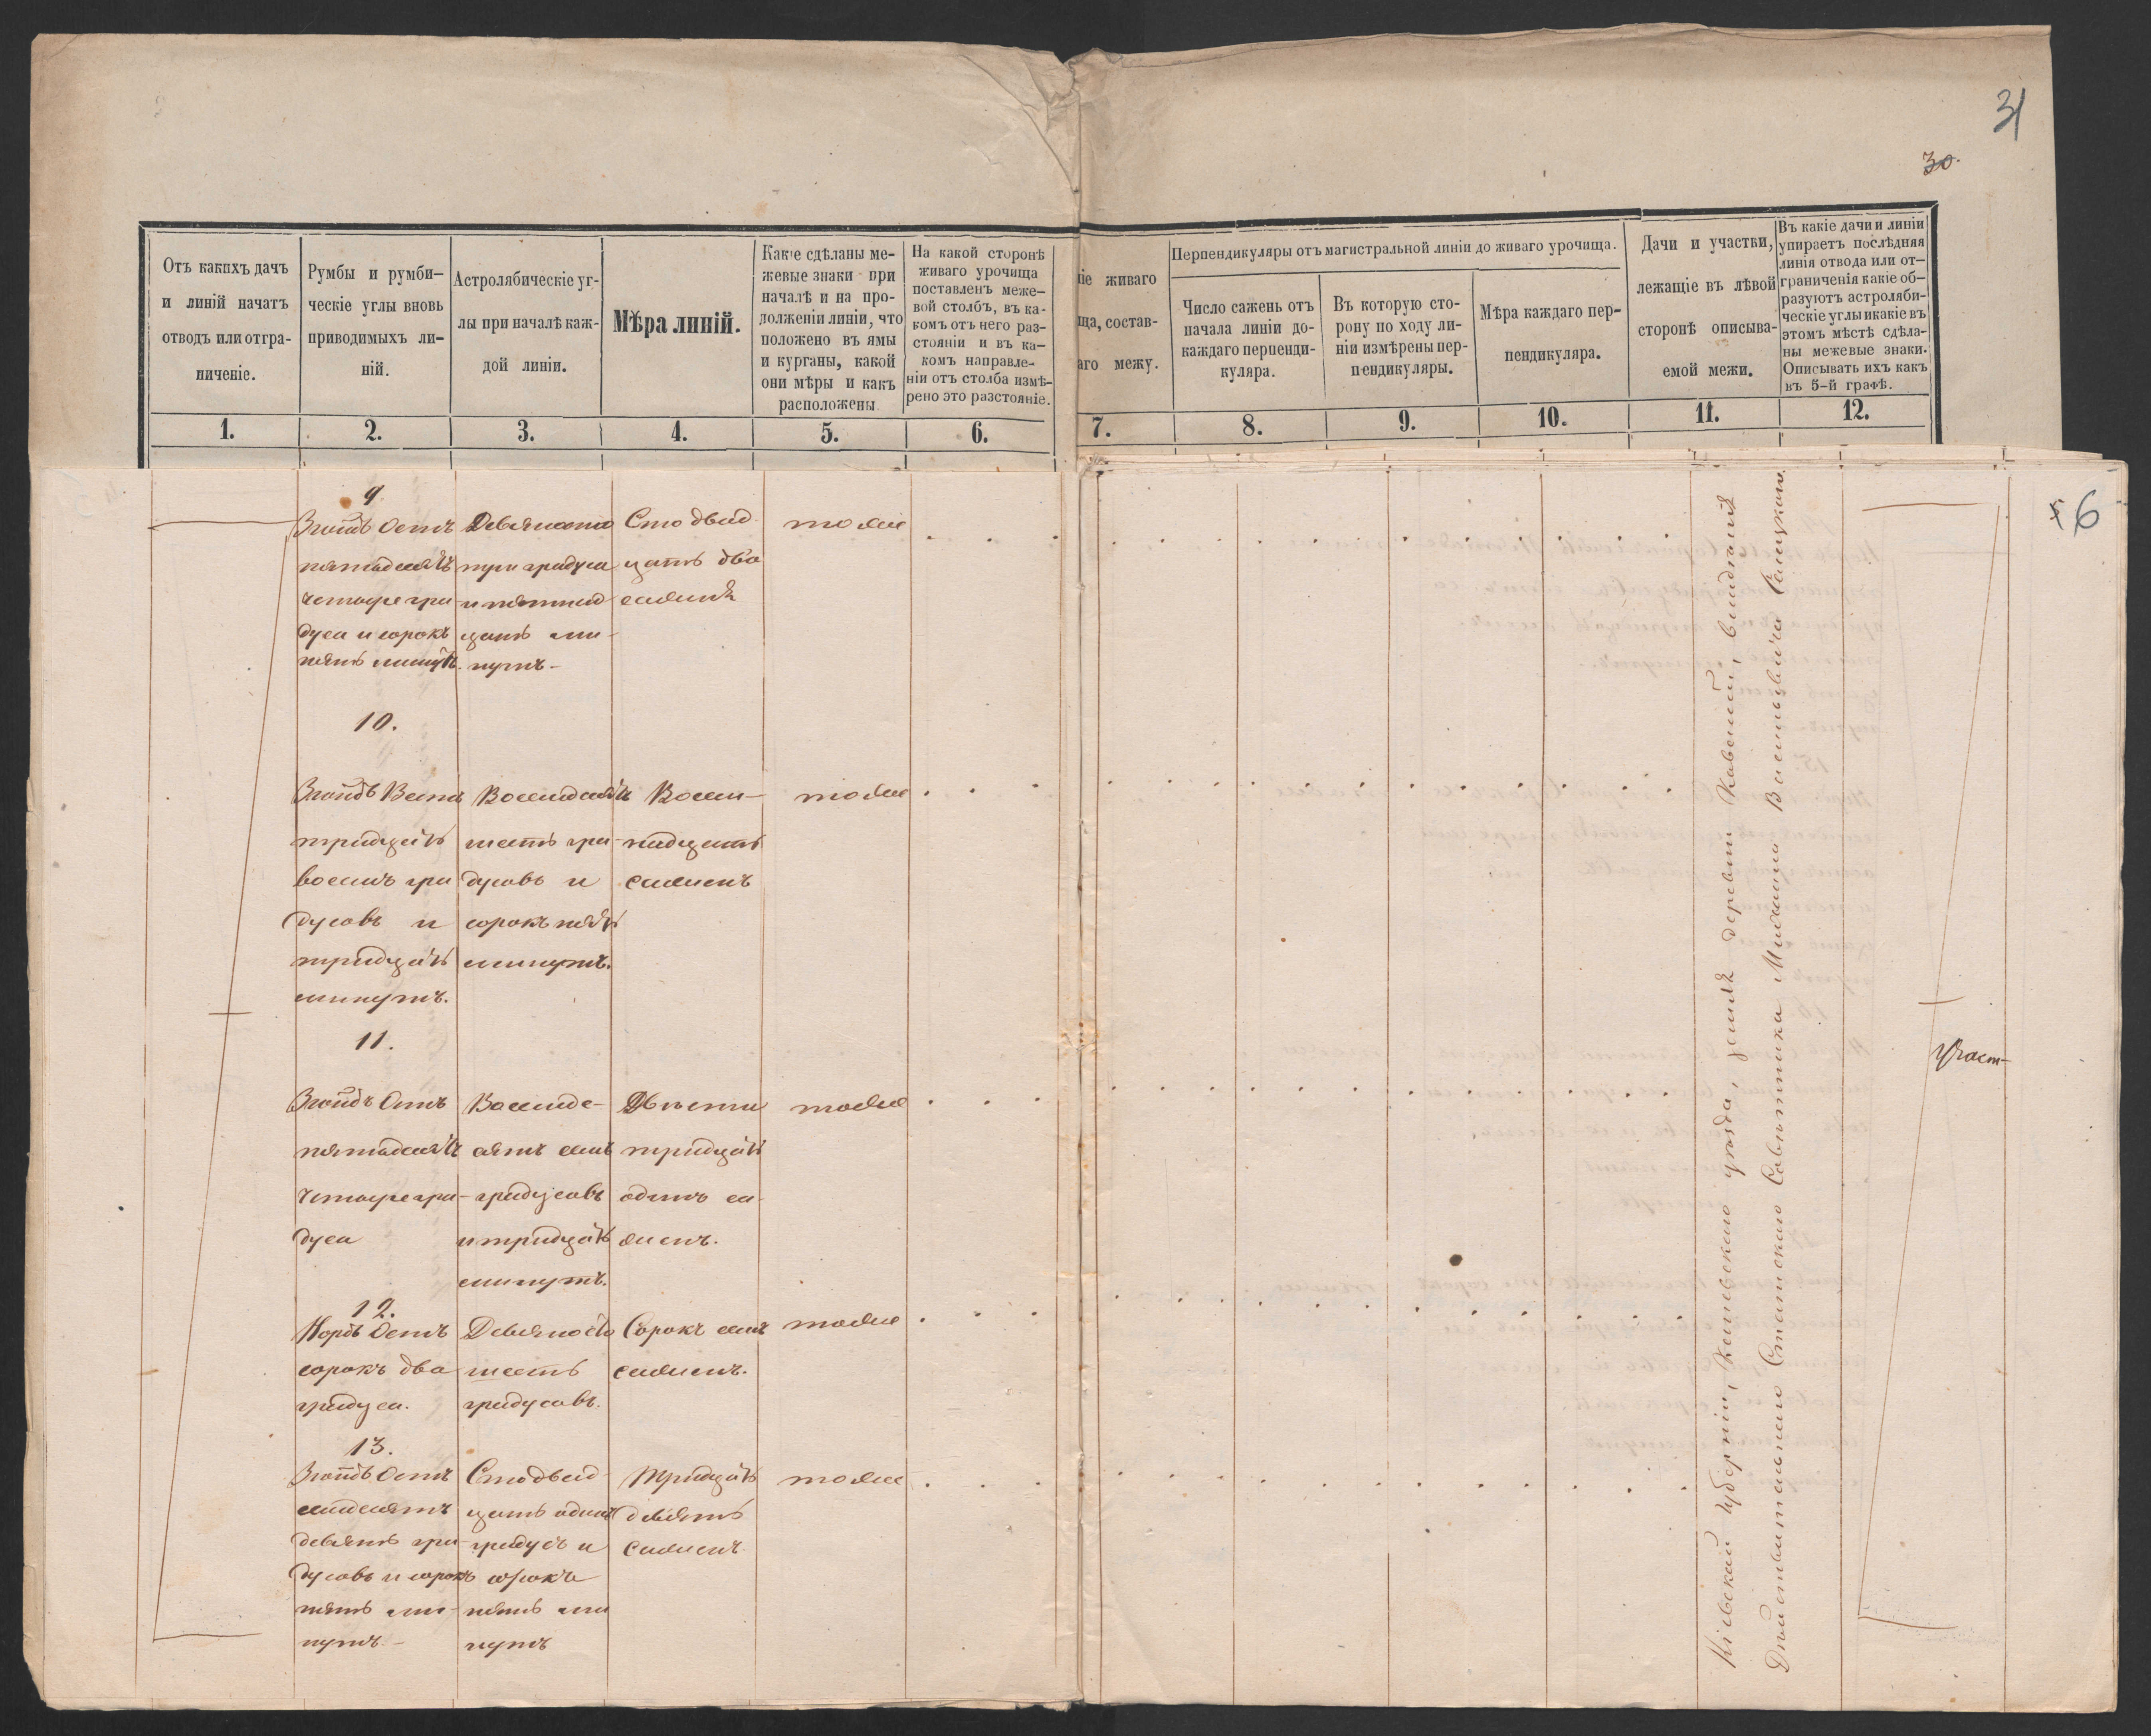 31
30.
Отъ какихъ дачъ
и линій начатъ
отводъ или отгра-
ниченіе.
Румбы и румби-
ческіе углы вновь
приводимыхъ ли-
ній.
Астролябическіе уг-
лы при началѣ каж-
дой линіи.
Мѣра линій.
Какіе сдѣланы ме-
жевые знаки при
началѣ и на про-
долженіи линіи, что
положено въ ямы
и курганы, какой
они мѣры и какъ
расположены
На какой сторонѣ
живаго урочища
поставленъ меже-
вой столбъ, въ ка-
комъ отъ него раз-
стояніи и въ ка-
комъ направле-
ніи отъ столба измѣ-
рено это разстояніе.
ніе живаго
ща, состав-
аго межу.
Перпендикуляры отъ магистральной линіи до живаго урочища.
Число сажень отъ
начала линіи до-
каждаго перпенди-
куляра.
Въ которую сто-
рону по ходу ли-
ніи измѣрены пер-
пендикуляры.
Мѣра каждаго пер-
пендикуляра.
Дачи и участки,
лежащіе въ лѣвой
сторонѣ описыва-
емой межи.
Въ какіе дачи и линіи
упираетъ послѣдняя
линія отвода или от-
граниченія какіе об-
разуютъ астроляби-
ческіе углы икакіе въ
этомъ мѣстѣ сдѣла-
ны межевые знаки.
Описывать ихъ какъ
въ 5-й графѣ.
1. 2. 3. 4. 5. 6. 7. 8. 9. 10. 11. 12.
6
9
Зюйдъ Остъ
пятьдесятъ
четыре гра
дуса и сорокъ
пять минутъ.
Девяносто
три градуса
и пятнад
цать ми-
нутъ-
Сто двад
цать два
сажня
тоже
10.
Зюйдъ Вестъ
тридцать
восемь гра
дусовъ и
тридцать
минутъ.
Восемдесятъ
шесть гра-
дусовъ и
сорокъ пять
минутъ.
Восем-
надцать
саженъ
тоже
11.
Зюйдъ Остъ
пятьдесятъ
четыре гра-
дуса
Восемде-
сятъ семь
градусовъ
и тридцать
минутъ.
Двѣсти
тридцать
одинъ са-
женъ.
тоже
12.
Нордъ Остъ
сорокъ два
градуса.
Девяносто
шесть
градусовъ.
Сорокъ семь
саженъ.
тоже
13.
Зюйдъ Остъ
семдесятъ
девять гра-
дусовъ и сорокъ
пять ми-
нутъ.-
Сто двад-
цать одинъ
градусъ и
сорокъ
пять ми
нутъ
Тридцать
девять
саженъ
тоже
Кіевской губерніи, уѣзда, земля деревни владѣнія
Дѣйствительнаго Статскаго Совѣтника Михаила Васильевича
Участ-